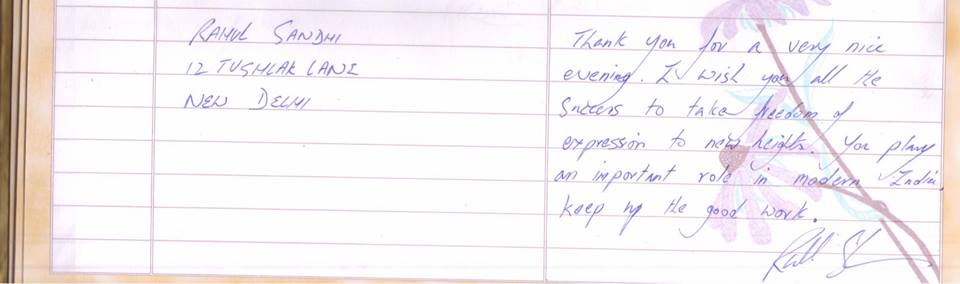 RAHUL GANDHI
12 TUGHLAK LANE
NEW DELHI
Thank you for a very nice
evening. I wish you all the
success to take freedom of
expression to new heights. You play
an important role in modern India.
keep up the good work.